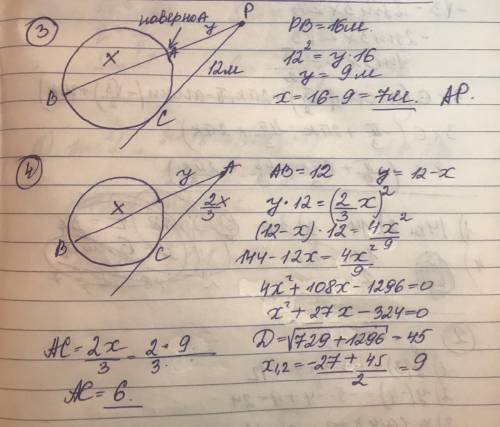 ③
наверно А
P
y
A
x
12м
B
C
PB = 16м.
12² = y · 16
y = 9 м
x = 16 - 9 = 7м. AP.
④
A
y
x
2/3 x
B
C
AB = 12 y = 12 - x
y · 12 = (2/3 x)²
(12 - x) · 12 = 4x²/9
144 - 12x = 4x²/9
4x² + 108x - 1296 = 0
x² + 27x - 324 = 0
D = √729 + 1296 = 45
x₁,₂ = -27 + 45 / 2 = 9
AC = 2x/3 = 2 · 9/3.
AC = 6.